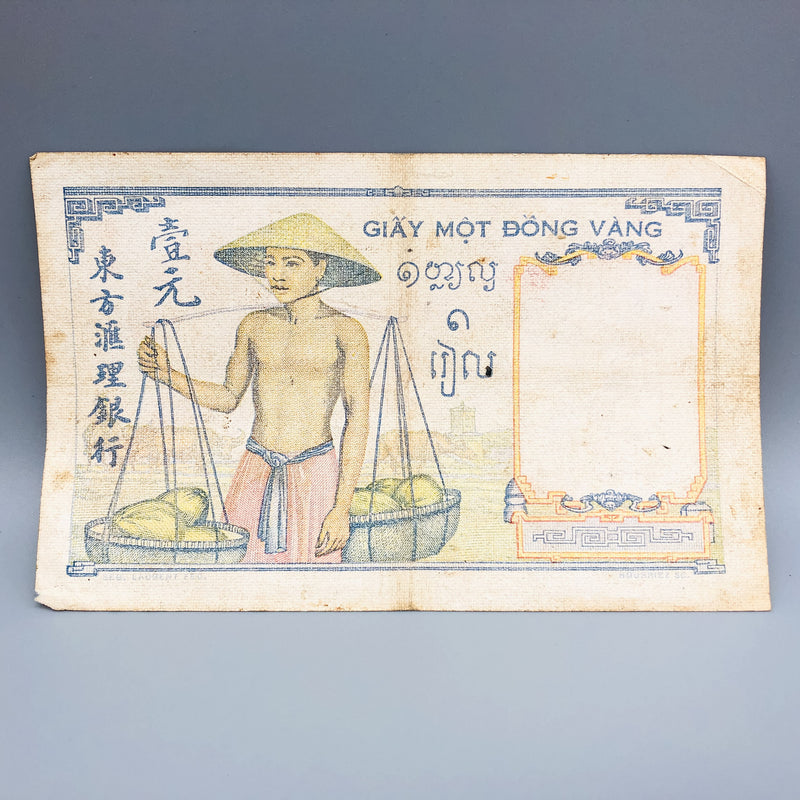 GIẤY MỘT ĐỒNG VÀNG
壹元
東方滙理銀行
១
រៀល
SEB. LAURENT FEC.
SC.